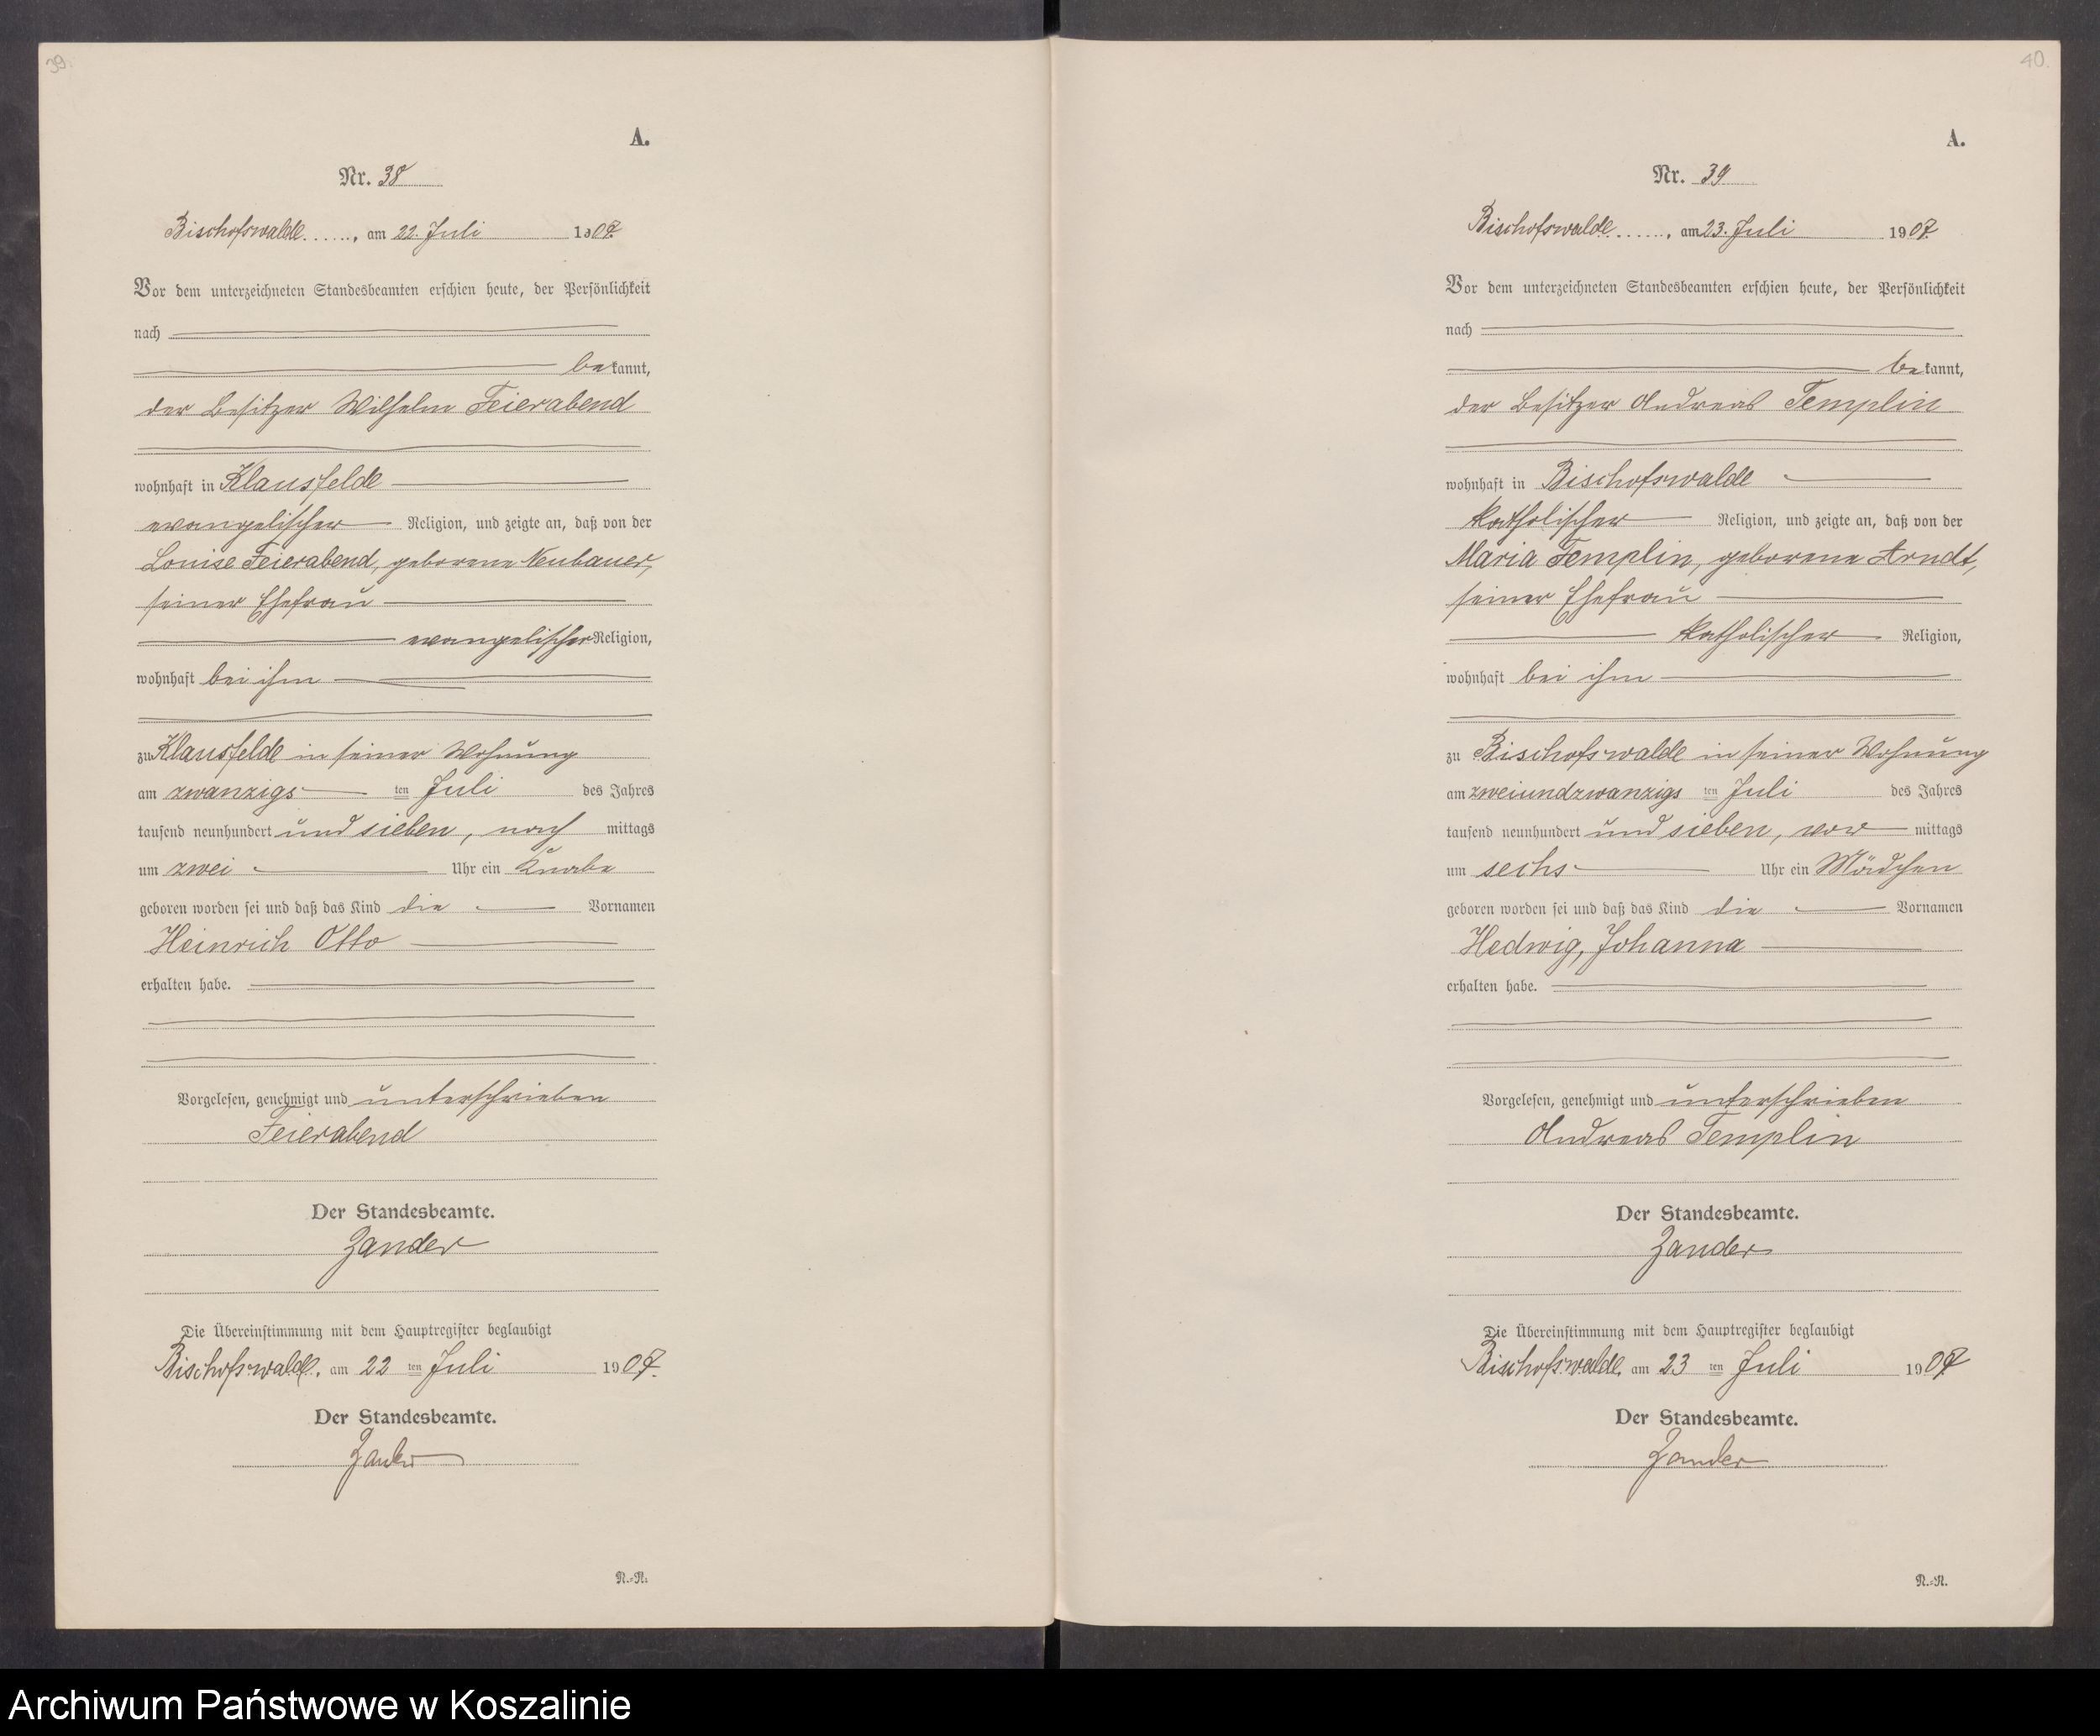 39.
A.
Nr. 38
Bischofswalde ......, am 22. Juli 1907.
Vor dem unterzeichneten Standesbeamten erschien heute, der Persönlichkeit
nach
bekannt,
der Besitzer Wilhelm Feierabend
wohnhaft in Klausfelde
evangelischer Religion, und zeigte an, daß von der
Louise Feierabend, geborene Neubauer,
seiner Ehefrau
evangelischer Religion,
wohnhaft bei ihm
zu Klausfelde in seiner Wohnung
am zwanzigs ten Juli des Jahres
tausend neunhundert und sieben, nach mittags
um zwei Uhr ein Knabe
geboren worden sei und daß das Kind die Vornamen
Heinrich Otto
erhalten habe.
Vorgelesen, genehmigt und unterschrieben
Feierabend
Der Standesbeamte.
Zander
Die Übereinstimmung mit dem Hauptregister beglaubigt
Bischofswalde, am 22 ten Juli 1907.
Der Standesbeamte.
Zander
N.=N.
40.
A.
Nr. 39
Bischofswalde ......, am 23. Juli 1907.
Vor dem unterzeichneten Standesbeamten erschien heute, der Persönlichkeit
nach
bekannt,
der Besitzer Andreas Templin
wohnhaft in Bischofswalde
katholischer Religion, und zeigte an, daß von der
Maria Templin, geborene Arndt,
seiner Ehefrau
katholischer Religion,
wohnhaft bei ihm
zu Bischofswalde in seiner Wohnung
am zweiundzwanzigs ten Juli des Jahres
tausend neunhundert und sieben, vor mittags
um sechs Uhr ein Mädchen
geboren worden sei und daß das Kind die Vornamen
Hedwig, Johanna
erhalten habe.
Vorgelesen, genehmigt und unterschrieben
Andreas Templin
Der Standesbeamte.
Zander
Die Übereinstimmung mit dem Hauptregister beglaubigt
Bischofswalde, am 23 ten Juli 1907
Der Standesbeamte.
Zander
N.=N.
Archiwum Państwowe w Koszalinie